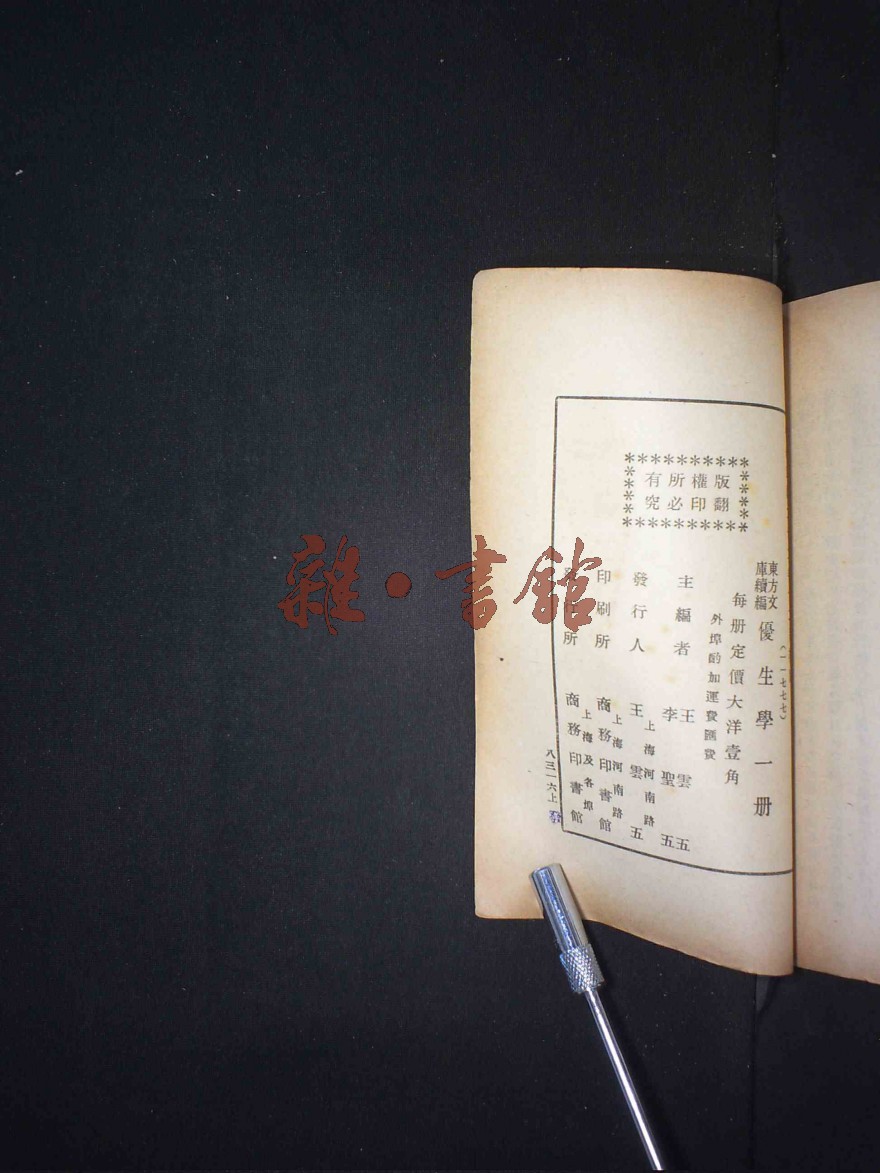 版權所有
翻印必究
(一一七七七)
東方文庫續編
優生學一册
每册定價大洋壹角
外埠酌加運費匯費
主編者
王雲五
李聖五
發行人
上海河南路
王雲五
印刷所
上海河南路
商務印書館
發行所
上海及各埠
商務印書館
八三一六上
雜·書館